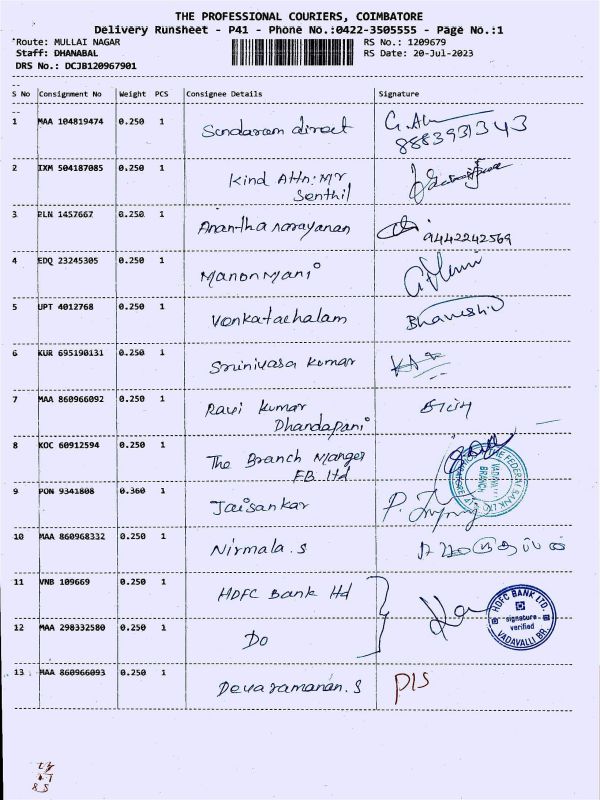 THE PROFESSIONAL COURIERS, COIMBATORE
Delivery Runsheet - P41 - Phone No.:0422-3505555 - Page No.:1
Route: MULLAI NAGAR RS No.: 1209679
Staff: DHANABAL RS Date: 20-Jul-2023
DRS No.: DCJB120967901
S No Consignment No Weight PCS Consignee Details Signature
1 MAA 104819474 0.250 1 Sundaram direct
8883931343
2 IXM 504187085 0.250 1 Kind Attn: Mr
Senthil
3 PLN 1457667 0.250 1 Anantha narayanan 9442242569
4 EDQ 23245305 0.250 1 Manonmani
5 UPT 4012768 0.250 1 Venkatachalam
6 KUR 695190131 0.250 1 Srinivasa Kumar
7 MAA 860966092 0.250 1 Ravi Kumar
Dhandapani
8 KOC 60912594 0.250 1 The Branch Manger
FB. ltd
THE FEDERAL BANK LTD
BRANCH
9 PON 9341808 0.360 1 Jaisankar
10 MAA 860968332 0.250 1 Nirmala. S
11 VNB 109669 0.250 1 HDFC Bank ltd
HDFC BANK LTD.
signature
verified
VADAVALLI BR.
12 MAA 298332580 0.250 1 Do
13 MAA 860966093 0.250 1 Devaramanan. S